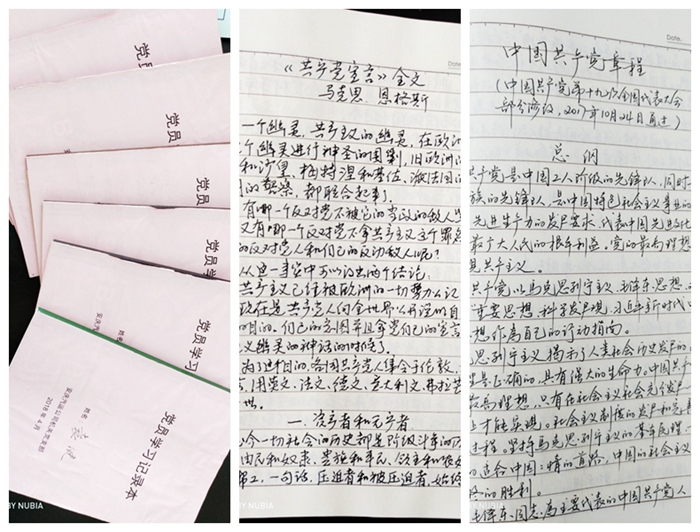 党员
党员
党员
党员学
党员学习
党员学习记录本
姓名
2018年4月
BY NUBIA
Date.
《共产党宣言》全文
马克思 恩格斯
一个幽灵,共产主义的幽灵,在欧洲
个幽灵进行神圣的围剿,旧欧洲的
和沙皇、梅特涅和基佐、法国的
国的警察,都联合起来了。
有哪一个反对党不被它的当政的敌人
又有哪一个反对党不拿共产主义这个罪名
的反对党人和自己的反动敌人呢?
从这一事实中可以得出两个结论:
共产主义已经被欧洲的一切势力公认
现在是共产党人向全世界公开说明自
的目的、自己的意图并且拿党自己的宣言
义幽灵的神话的时候了。
为了这个目的,各国共产党人集会于伦敦,
言,用英文、法文、德文、意大利文、弗拉芒
世。
一、资产者和无产者
今一切社会的历史都是阶级斗争的历
由民和奴隶、贵族和平民、领主和农奴
帮工,一句话,压迫者和被压迫者,始终
BY NUBIA
Date.
中国共产党章程
(中国共产党第十九次全国代表大会
部分修改,2017年10月24日通过)
总纲
共产党是中国工人阶级的先锋队,同时
族的先锋队,是中国特色社会主义事业的
先进生产力的发展要求,代表中国先进文化
最广大人民的根本利益。党的最高理想
现共产主义。
共产党以马克思列宁主义、毛泽东思想、
重要思想、科学发展观、习近平新时代
想作为自己的行动指南。
思列宁主义揭示了人类社会历史发展的
是正确的,具有强大的生命力。中国共产
最高理想,只有在社会主义社会充分发展
上才能实现。社会主义制度的发展和完善
过程。坚持马克思列宁主义的基本原理,
适合中国国情的道路,中国的社会主义
终的胜利。
毛泽东同志为主要代表的中国共产党人
BY NUBIA